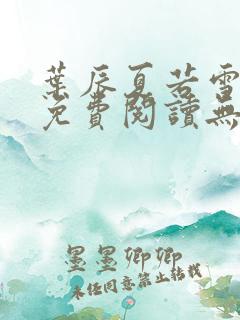 葉辰夏若雪
免費閱讀無
墨墨卿卿
未經同意禁止轉載